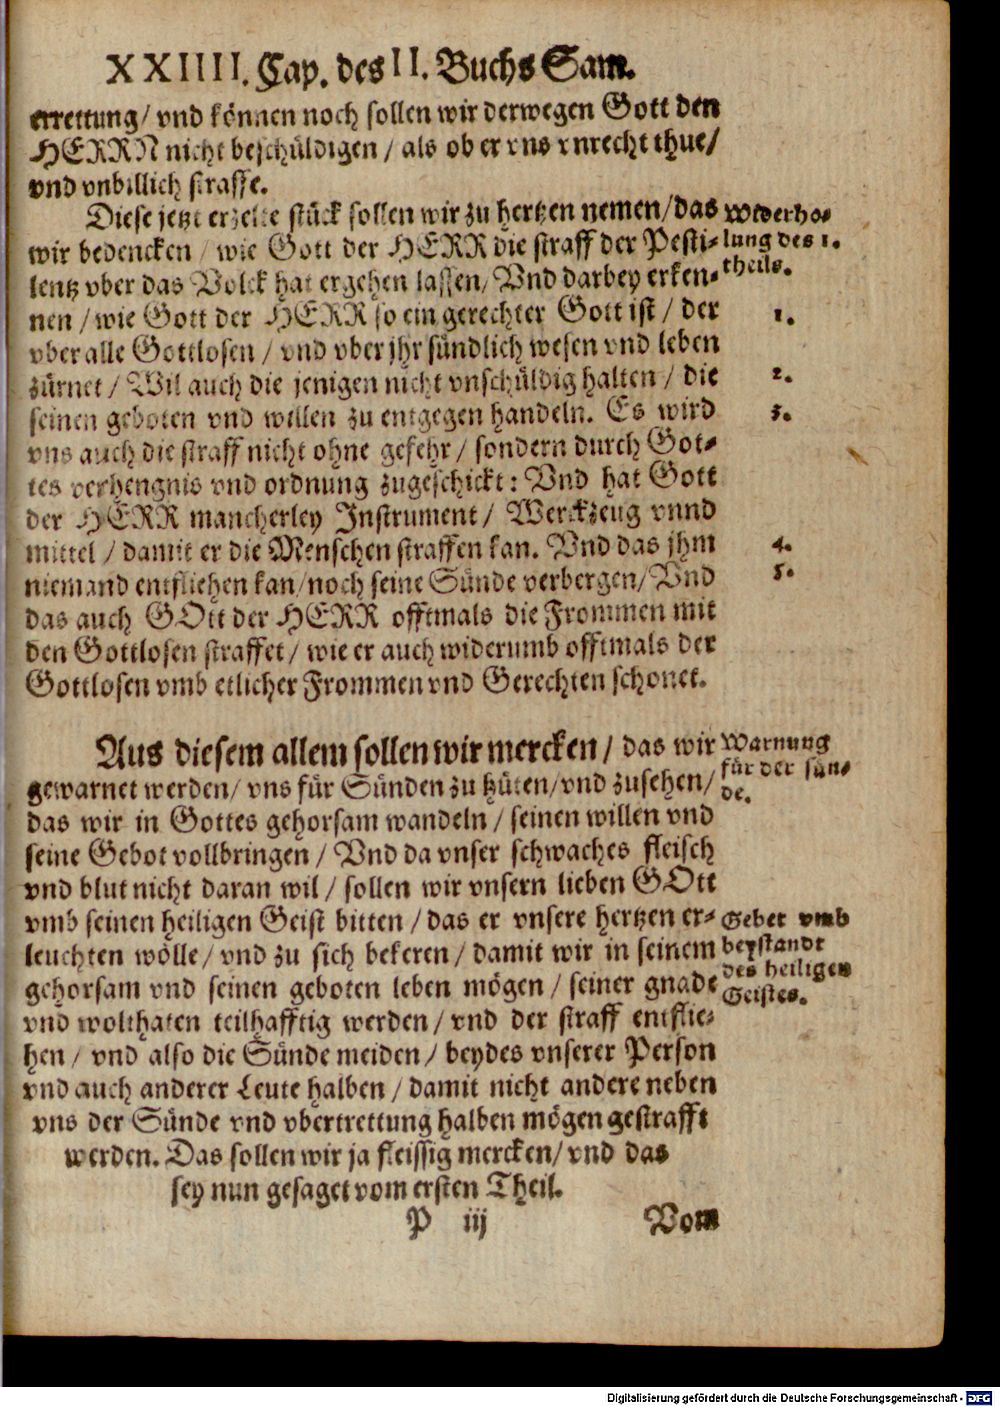 XXIIII. Cap. des II. Buchs Sam.
errettung/ vnd können noch sollen wir derwegen Gott den
HERRN nicht beschüldigen / als ob er vns vnrecht thue/
vnd vnbillich straffe.
Diese jetzt erzelte stück sollen wir zu hertzen nemen/das
Wiederho-
wir bedencken / wie Gott der HERR die straff der Pesti-
lung des 1.
lentz vber das Volck hat ergehen lassen/ Vnd darbey erken-
theils.
nen / wie Gott der HERR so ein gerechter Gott ist / der
1.
vber alle Gottlosen / vnd vber jhr sündlich wesen vnd leben
zürnet / Wil auch die jenigen nicht vnschüldig halten / die
2.
seinen geboten vnd willen zu entgegen handeln. Es wird
3.
vns auch die straff nicht ohne gefehr / sondern durch Got-
tes verhengnis vnd ordnung zugeschickt: Vnd hat Gott
der HERR mancherley Instrument / Werckzeug vnnd
mittel / damit er die Menschen straffen kan. Vnd das jhm
4.
niemand entfliehen kan/noch seine Sünde verbergen/ Vnd
5.
das auch GOtt der HERR offtmals die Frommen mit
den Gottlosen straffet / wie er auch widerumb offtmals der
Gottlosen vmb etlicher Frommen vnd Gerechten schonet.
Aus diesem allem sollen wir mercken / das wir
Warnung
gewarnet werden/ vns für Sünden zu hüten/vnd zusehen/
für der sün-
de.
das wir in Gottes gehorsam wandeln / seinen willen vnd
seine Gebot vollbringen / Vnd da vnser schwaches fleisch
vnd blut nicht daran wil / sollen wir vnsern lieben GOtt
vmb seinen heiligen Geist bitten / das er vnsere hertzen er-
Gebet vmb
leuchten wölle/ vnd zu sich bekeren / damit wir in seinem
beystandt
gehorsam vnd seinen geboten leben mögen / seiner gnade
des heiligen
Geistes.
vnd wolthaten teilhafftig werden / vnd der straff entflie-
hen / vnd also die Sünde meiden / beydes vnserer Person
vnd auch anderer Leute halben / damit nicht andere neben
vns der Sünde vnd vbertrettung halben mögen gestrafft
werden. Das sollen wir ja fleissig mercken/ vnd das
sey nun gesaget vom ersten Theil.
P iij
Vom
Digitalisierung gefördert durch die Deutsche Forschungsgemeinschaft - DFG